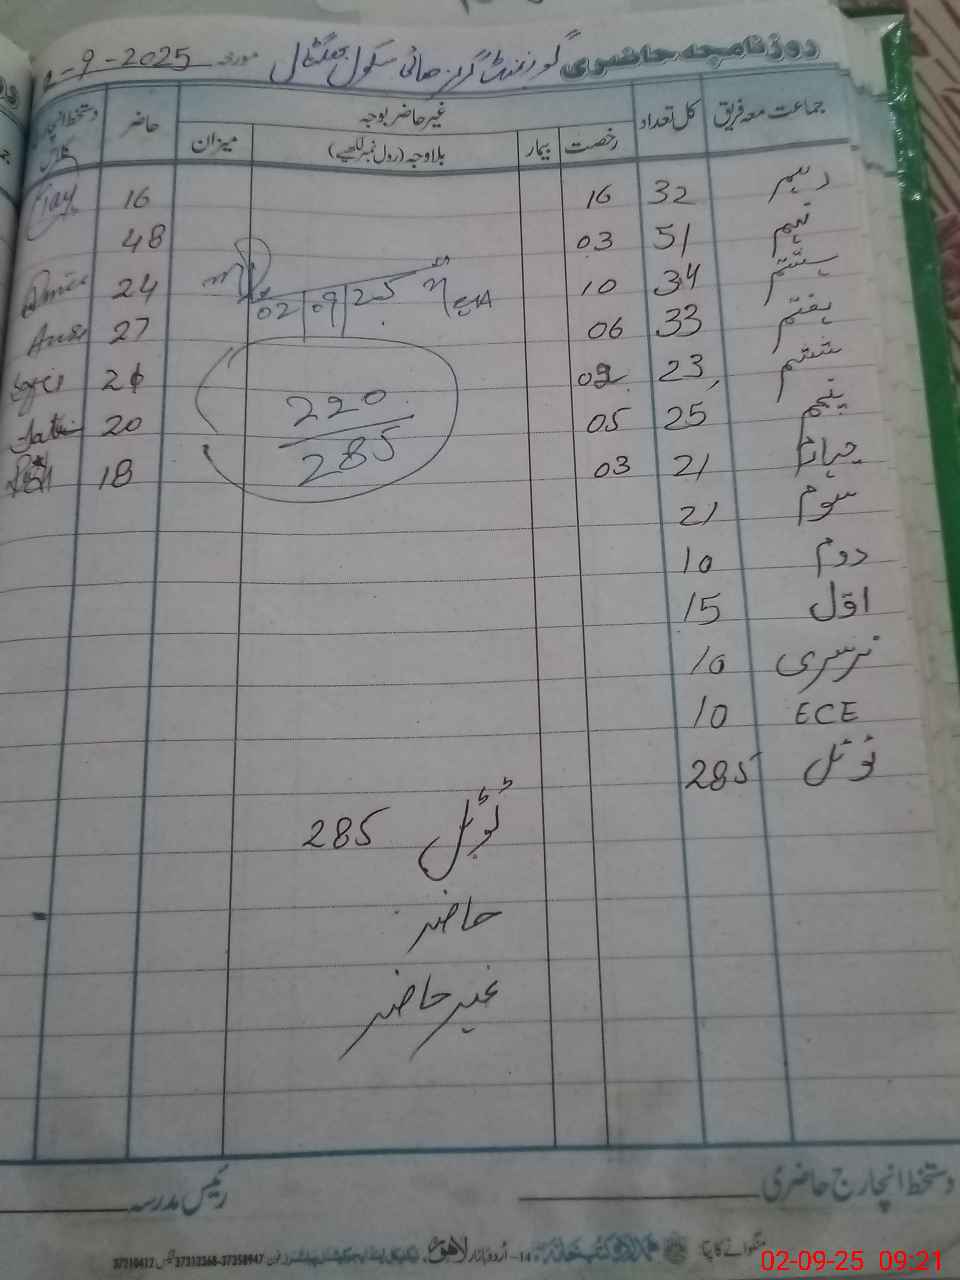 روزنامچہ حاضری گورنمنٹ گرلز ہائی سکول مورخہ 2-9-2025
جماعت معہ فریق کل تعداد غیر حاضر بوجہ حاضر دستخط انچارج
رخصت بیمار بلاوجہ (رول نمبر لکھیے) میزان
دہم 32 16 16
نہم 51 03 48
ہشتم 34 10 24
ہفتم 33 06 27
ششم 23 02 21
پنجم 25 05 20
چہارم 21 03 18
سوم 21
دوم 10
اول 15
نرسری 10
ECE 10
ٹوٹل 285
02/09/25
220
285
ٹوٹل 285
حاضر
غیر حاضر
دستخط انچارج حاضری رئیس مدرسہ
منگوانے کا پتہ 14-اردو بازار لاہور 37358947-37313368 37310412
02-09-25 09:21